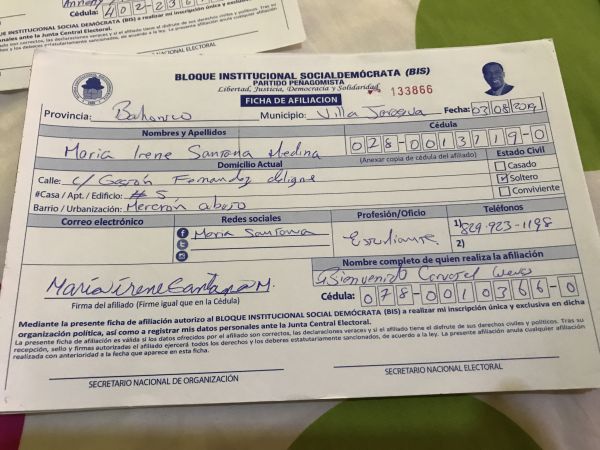 Cédula: 402-236
INSTITUCIONAL SOCIALDEMÓCRATA (BIS) a realizar mi inscripción única y exclusiva
nales ante la Junta Central Electoral.
SECRETARIO NACIONAL ELECTORAL
BLOQUE INSTITUCIONAL SOCIALDEMÓCRATA (BIS)
PARTIDO PEÑAGOMISTA
Libertad, Justicia, Democracia y Solidaridad
133866
FICHA DE AFILIACION
Provincia: Bahoruco Municipio: Villa Jaragua Fecha: 03/08/2019
Nombres y Apellidos Cédula
Maria Irene Santana Medina 028-0013719-0
(Anexar copia de cédula del afiliado)
Domicilio Actual Estado Civil
Casado
Calle: c/ Gastón Fernandez deligne Soltero
#Casa / Apt. / Edificio: # 5 Conviviente
Barrio / Urbanización: abajo
Correo electrónico Redes sociales Profesión/Oficio Teléfonos
Maria Santana Estudiante 1) 829-923-1198
2)
Nombre completo de quien realiza la afiliación
Bienvenido
María Irene Santana M. Cédula: 078-0010366-0
Firma del afiliado (Firme igual que en la Cédula)
Mediante la presente ficha de afiliación autorizo al BLOQUE INSTITUCIONAL SOCIALDEMÓCRATA (BIS) a realizar mi inscripción única y exclusiva en dicha
organización política, así como a registrar mis datos personales ante la Junta Central Electoral.
La presente ficha de afiliación es válida si los datos ofrecidos por el afiliado son correctos, las declaraciones veraces y si el afiliado tiene el disfrute de sus derechos civiles y políticos. Tras su
recepción, sello y firmas autorizadas el afiliado ejercerá todos los derechos y los deberes estatutariamente sancionados, de acuerdo a la ley. La presente afiliación anula cualquier afiliación
realizada con anterioridad a la fecha que aparece en esta ficha.
SECRETARIO NACIONAL DE ORGANIZACIÓN SECRETARIO NACIONAL ELECTORAL